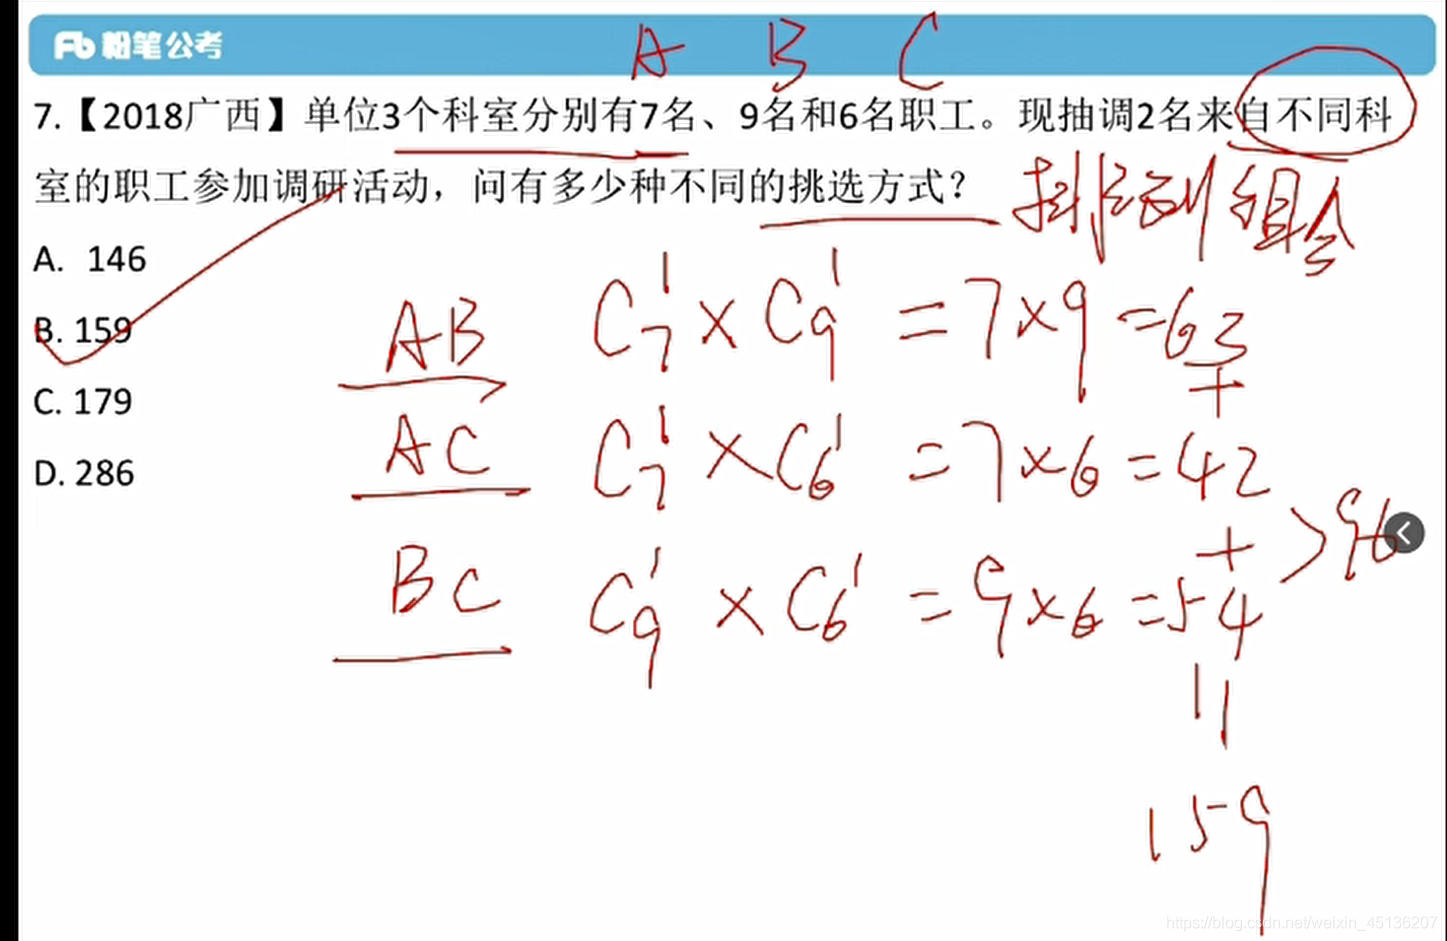 A B C
粉笔公考
7.【2018广西】单位3个科室分别有7名、9名和6名职工。现抽调2名来自不同科
室的职工参加调研活动，问有多少种不同的挑选方式？
排列组合
A. 146
B. 159
C. 179
D. 286
AB C₇¹ × C₉¹ = 7×9 = 63
+
AC C₇¹ × C₆¹ = 7×6 = 42
+ > 96
BC C₉¹ × C₆¹ = 9×6 = 54
||
159
https://blog.csdn.net/weixin_45136207